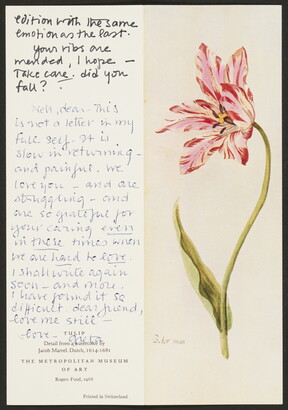 edition with the same
emotion as the last.
your ribs are
mended, I hope –
Take care. did you
fall?
Well, dear – This
is not a letter in my
full self. It is
slow in returning –
and painful. We
love you – and are
struggling – and
are so grateful for
your caring even
in these times when
we are hard to love.
I shall write again
soon – and more.
I have found it so
difficult dear friend,
love me still –
love –
TULIP
Detail from a watercolor by
Jacob Marrel, Dutch, 1614-1681
THE METROPOLITAN MUSEUM
OF ART
Rogers Fund, 1968
Printed in Switzerland